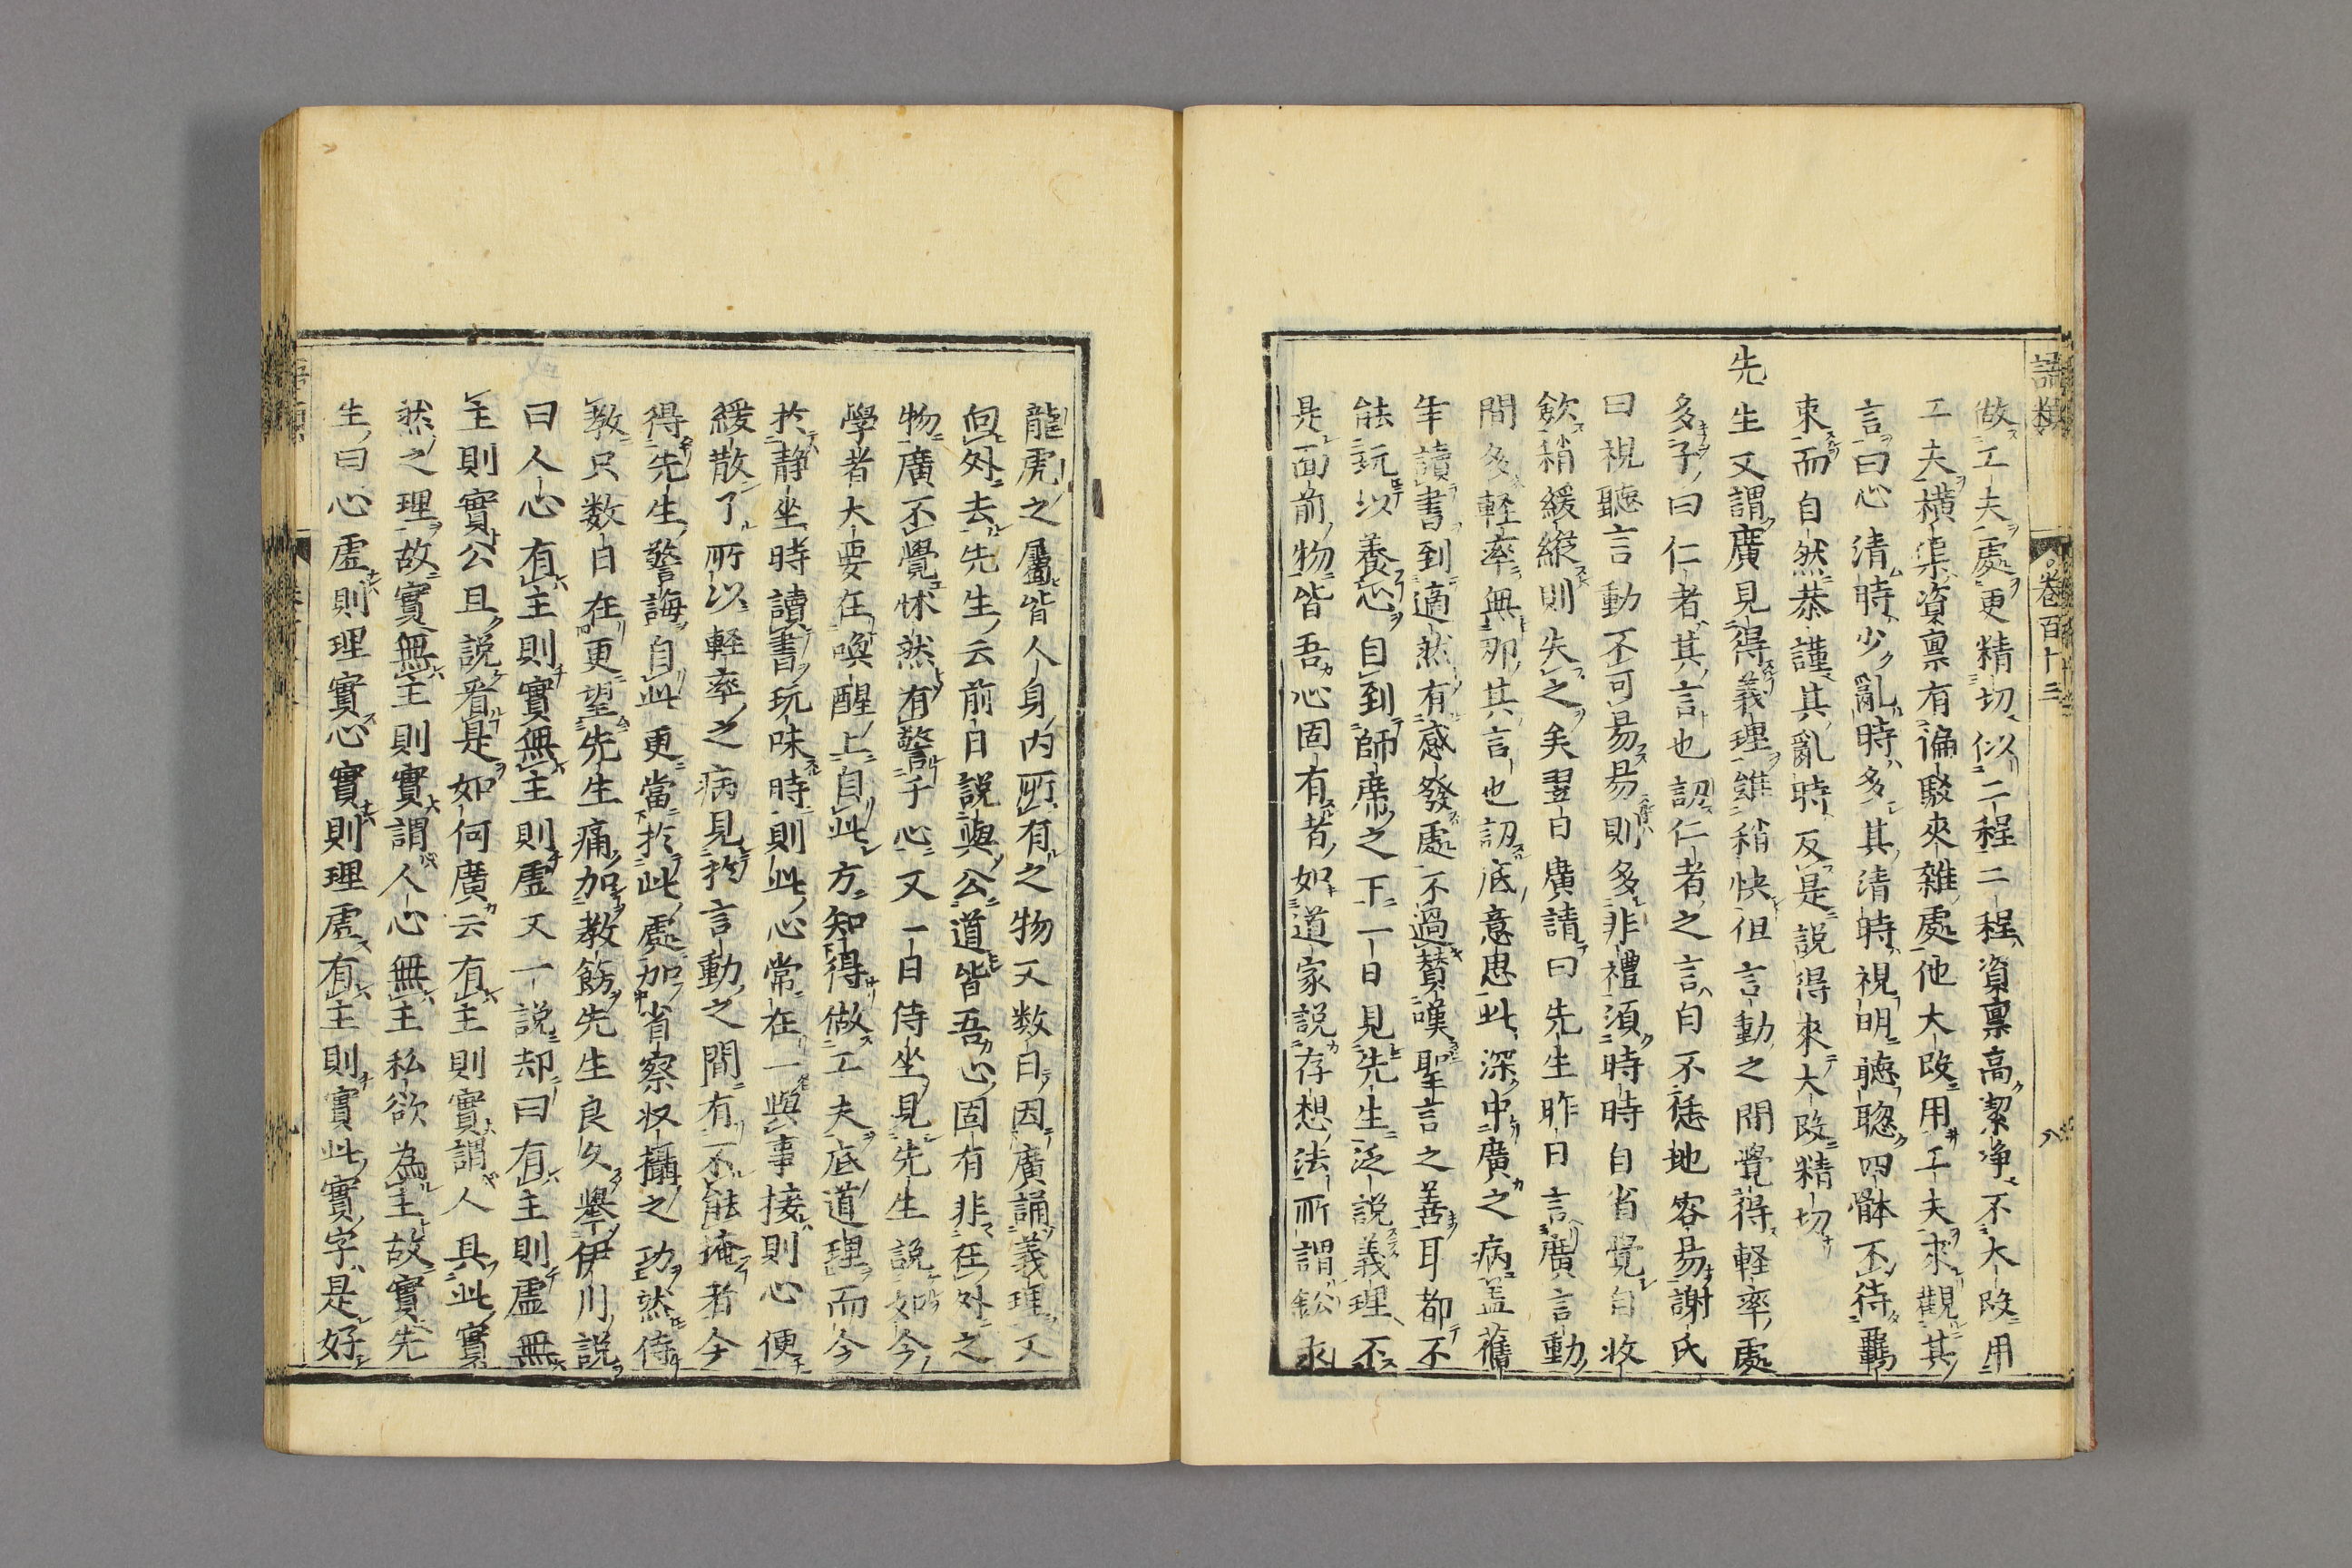 語類
卷百十三
八
做工夫處更精切似二程二程資禀高潔淨不大段用
工夫橫渠資禀有偏駁夾雜處他大段用工夫來觀其
言曰心清時少亂時多其清時視明聽聰四體不待羈
束而自然恭謹其亂時反是說得來大段精切
先生又謂廣見得義理雖稍快但言動之間覺得輕率處
多子曰仁者其言也訒仁者之言自不恁地容易謝氏
曰視聽言動不可易易則多非禮須時時自省覺自收
歛稍緩縱則失之矣翌日廣請曰先生昨日言廣言動
間多輕率無那其言也訒底意思此深中廣之病蓋舊
年讀書到適然有感發處不過贊嘆聖言之善耳都不
能玩以養心自到師席之下一日見先生泛說義理不
是面前物皆吾心固有者如道家說存想法所謂鉛汞
龍虎之屬皆人身内所有之物又数日因廣誦義理又
向外去先生云前日說與公道皆吾心固有非在外之
物廣不覺怵然有警于心又一日侍坐見先生說如今
學者大要在喚醒上自此方知得做工夫底道理而今
於静坐時讀書玩味時則此心常在一與事接則心便
緩散了所以輕率之病見於言動之間有不能掩者今
得先生警誨自此更當於此處加省察收攝之功然侍
教只数日在更望先生痛加教飭先生良久舉伊川說
曰人心有主則實無主則虛又一說却曰有主則虛無
主則實公且說看是如何廣云有主則實謂人具此實
然之理故實無主則實謂人心無主私欲為主故實先
生曰心虛則理實心實則理虛有主則實此實字是好